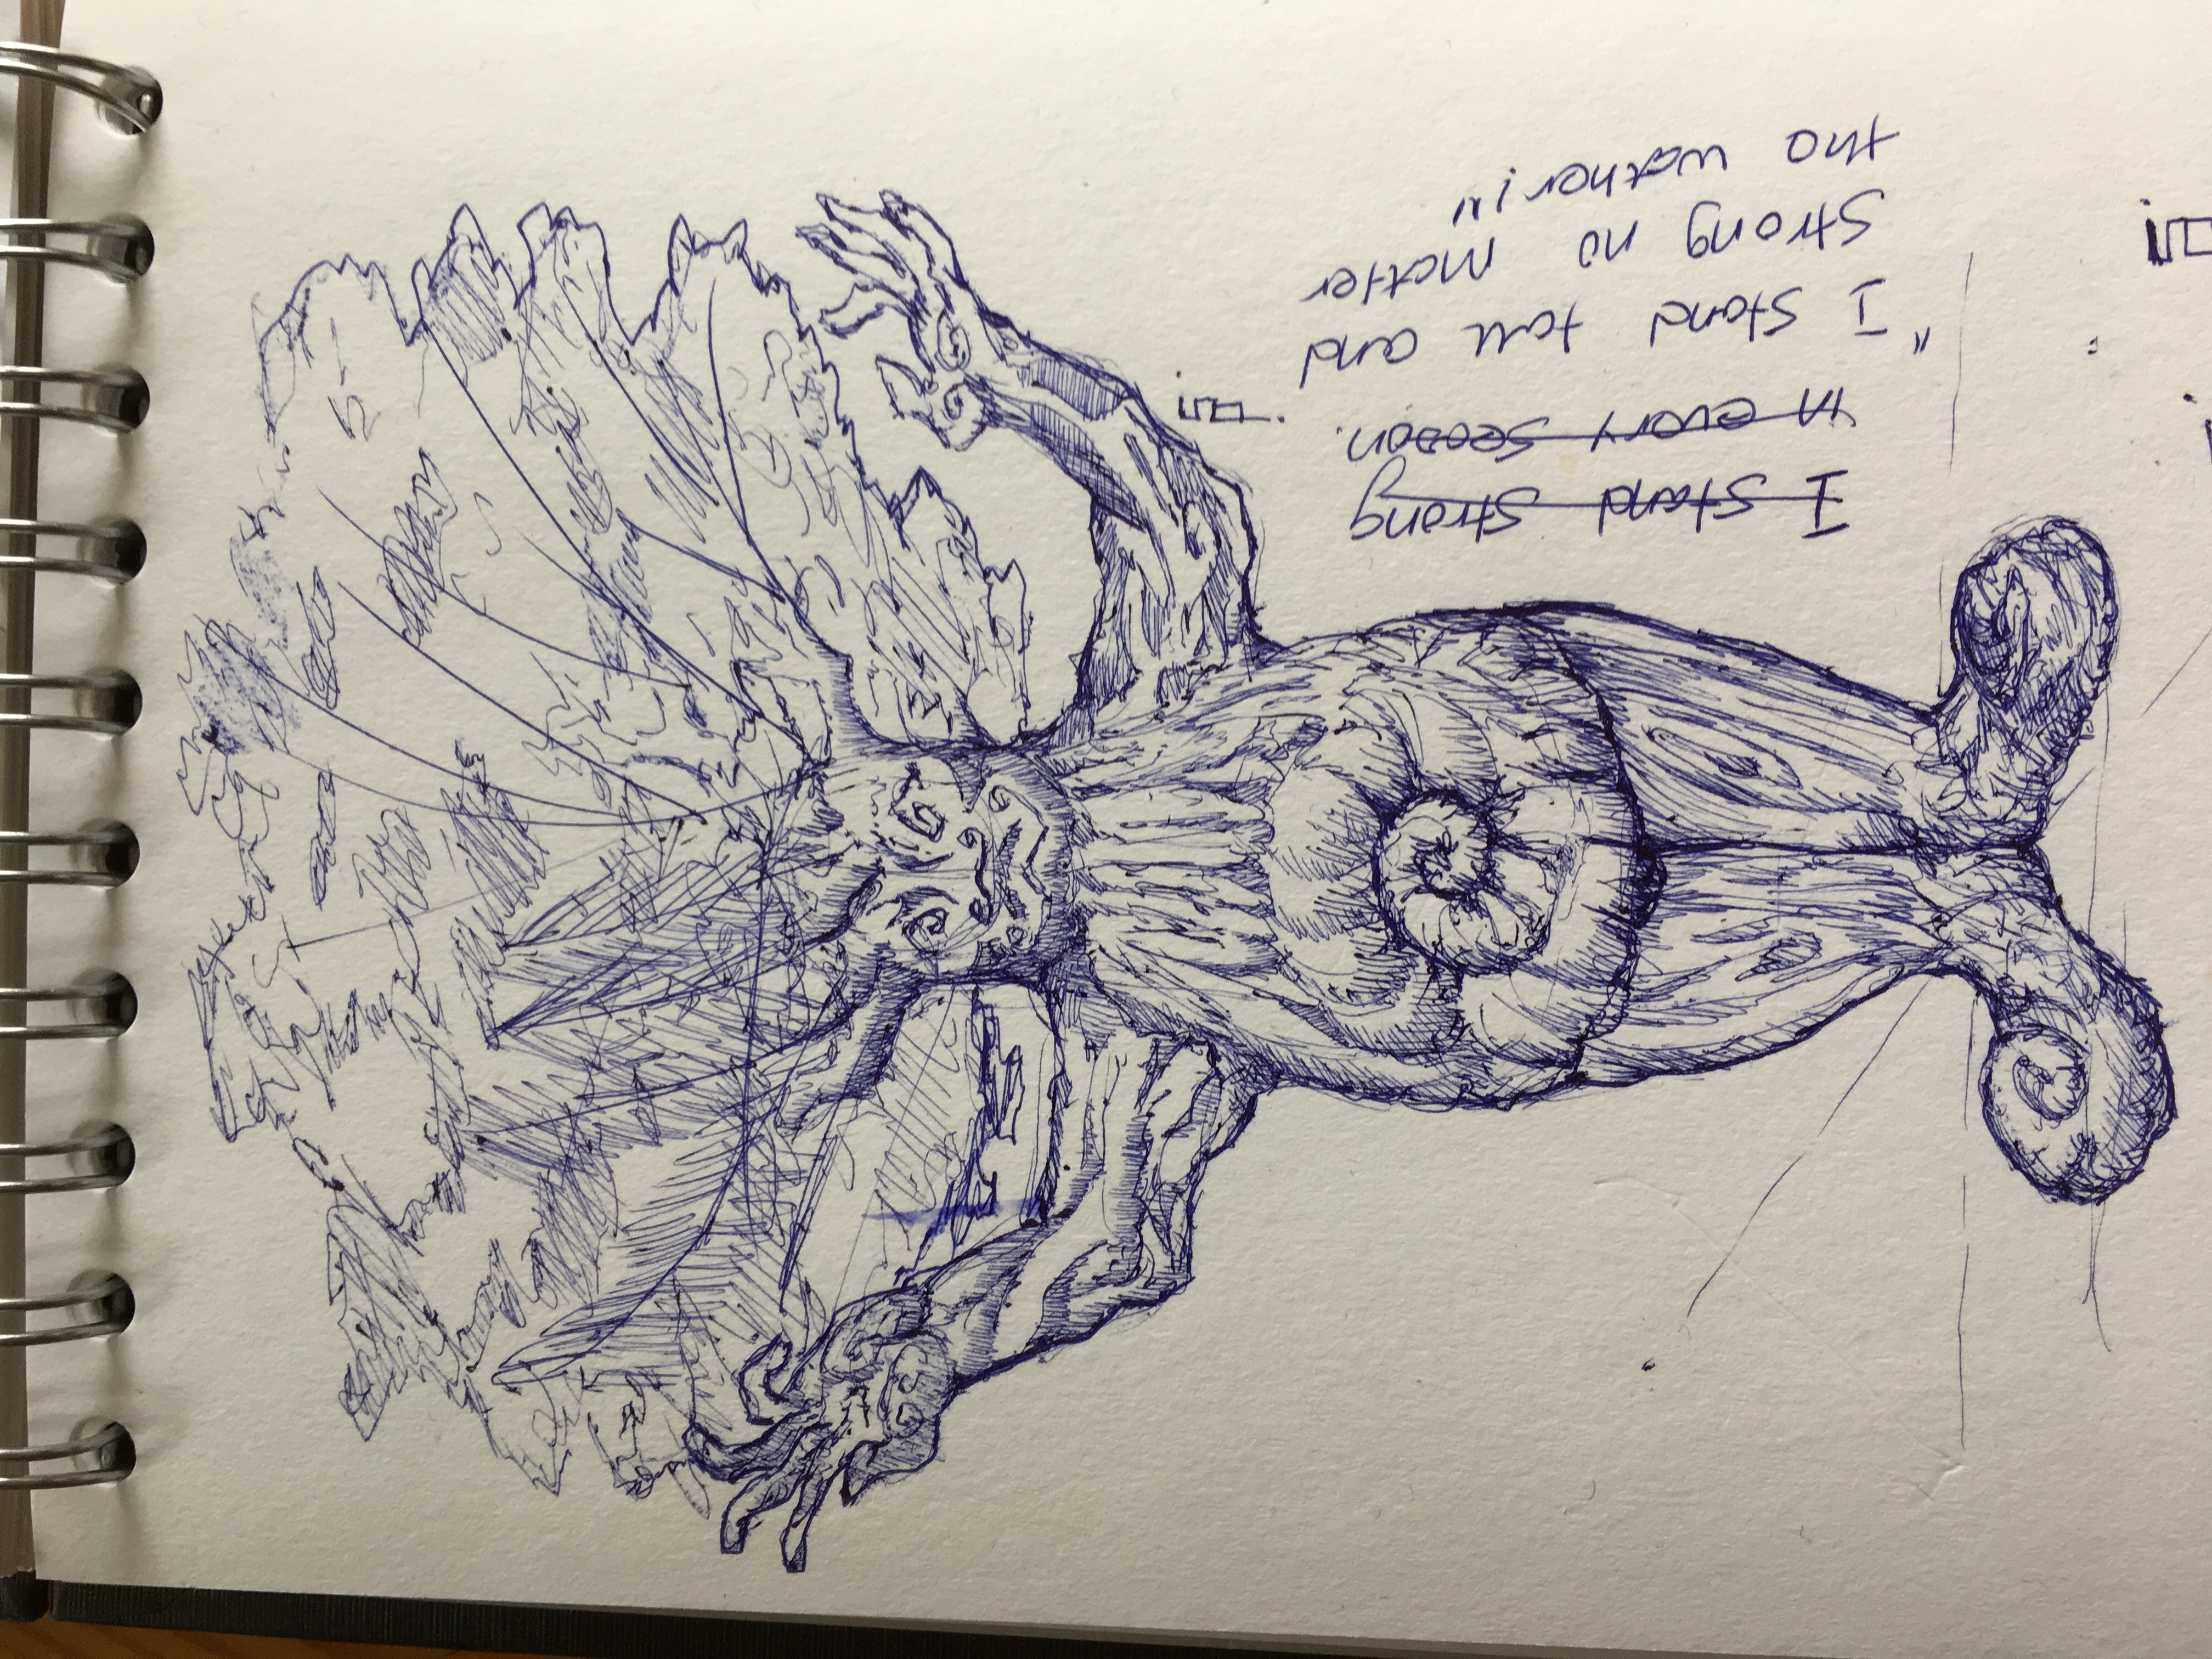 I Stand Strong
in every Season.
" I Stand tall and
Strong no matter
the wather!"